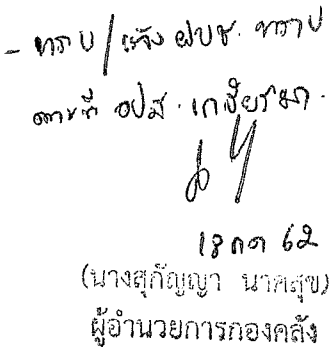 - ทราบ / แจ้ง ฝบช. ทราบ
ตามที่ อปส. เกษียณมา.
18 กค 62
(นางสุกัญญา นาคสุข)
ผู้อำนวยการกองคลัง